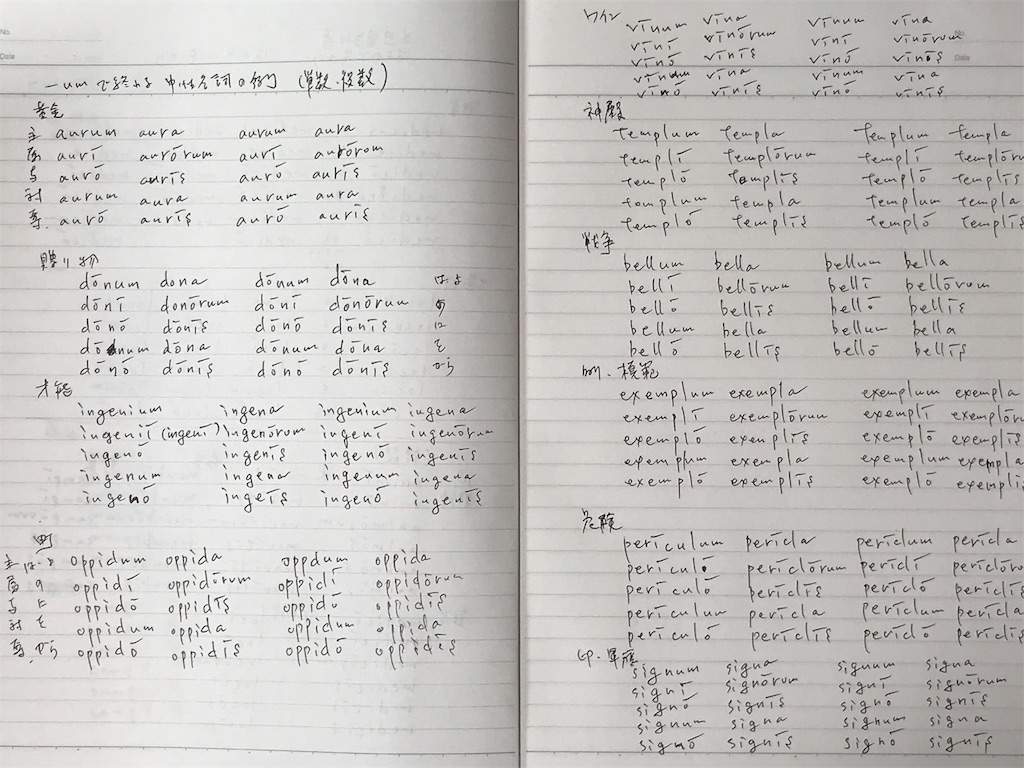 No.
Date
-um で終わる 中性名詞の例 (単数・複数)
黄金
主 aurum aura aurum aura
属 aurī aurōrum aurī aurōrom
与 aurō aurīs aurō aurīs
対 aurum aura aurum aura
奪. aurō aurīs aurō aurīs
贈り物
dōnum dona dōnum dōna は、が
dōnī donōrum dōnī dōnōrum の
dōnō dōnīs dōnō dōnīs に
dōnum dōna dōnum dōna を
dōnō dōnīs dōnō dōnīs から
才能
ingenium ingena ingenium ingena
ingeniī (ingenī) ingenōrum ingenī ingenōrum
ingenō ingenīs ingenō ingenīs
ingenum ingena ingenum ingena
ingenō ingeīs ingenō ingenīs
町
主 は・が oppidum oppida oppdum oppida
属 の oppidī oppidōrum oppidī oppidōrum
与 に oppidō oppidīs oppidō oppidīs
対 を oppidum oppida oppidum oppida
奪. から oppidō oppidīs oppidō oppidīs
ワイン
vīnum vīna vīnum vīna
vīnī vīnōrum vīnī vīnōrum
vīnō vīnīs vīnō vīnīs
Date
vīnum vīna vīnum vīna
vīnō vīnīs vīnō vīnīs
神殿
templum templa templum templa
templī templōrum templī templōru
templō templīs templō templīs
templum templa templum templa
templō templīs templō templīs
戦争
bellum bella bellum bella
bellī bellōrum bellī bellōrum
bellō bellīs bellō bellīs
bellum bella bellum bella
bellō bellīs bellō bellīs
例・模範
exemplum exempla exemplum exempla
exemplī exemplōrum exemplī exemplōr
exemplō exemplīs exemplō exemplīs
exemplum exempla exemplum exempla
exemplō exemplīs exemplō exemplī
危険
perīculum perīcla perīclum perīcla
perīculī perīclōrum perīclī perīclōru
perīculō perīclīs perīclō perīclīs
perīculum perīcla perīclum perīcla
perīculō perīclīs perīclō perīclīs
印・軍旗
signum signa signum signa
signī signōrum signī signōrum
signō signīs signō signīs
signum signa signum signa
signō signīs signō signīs